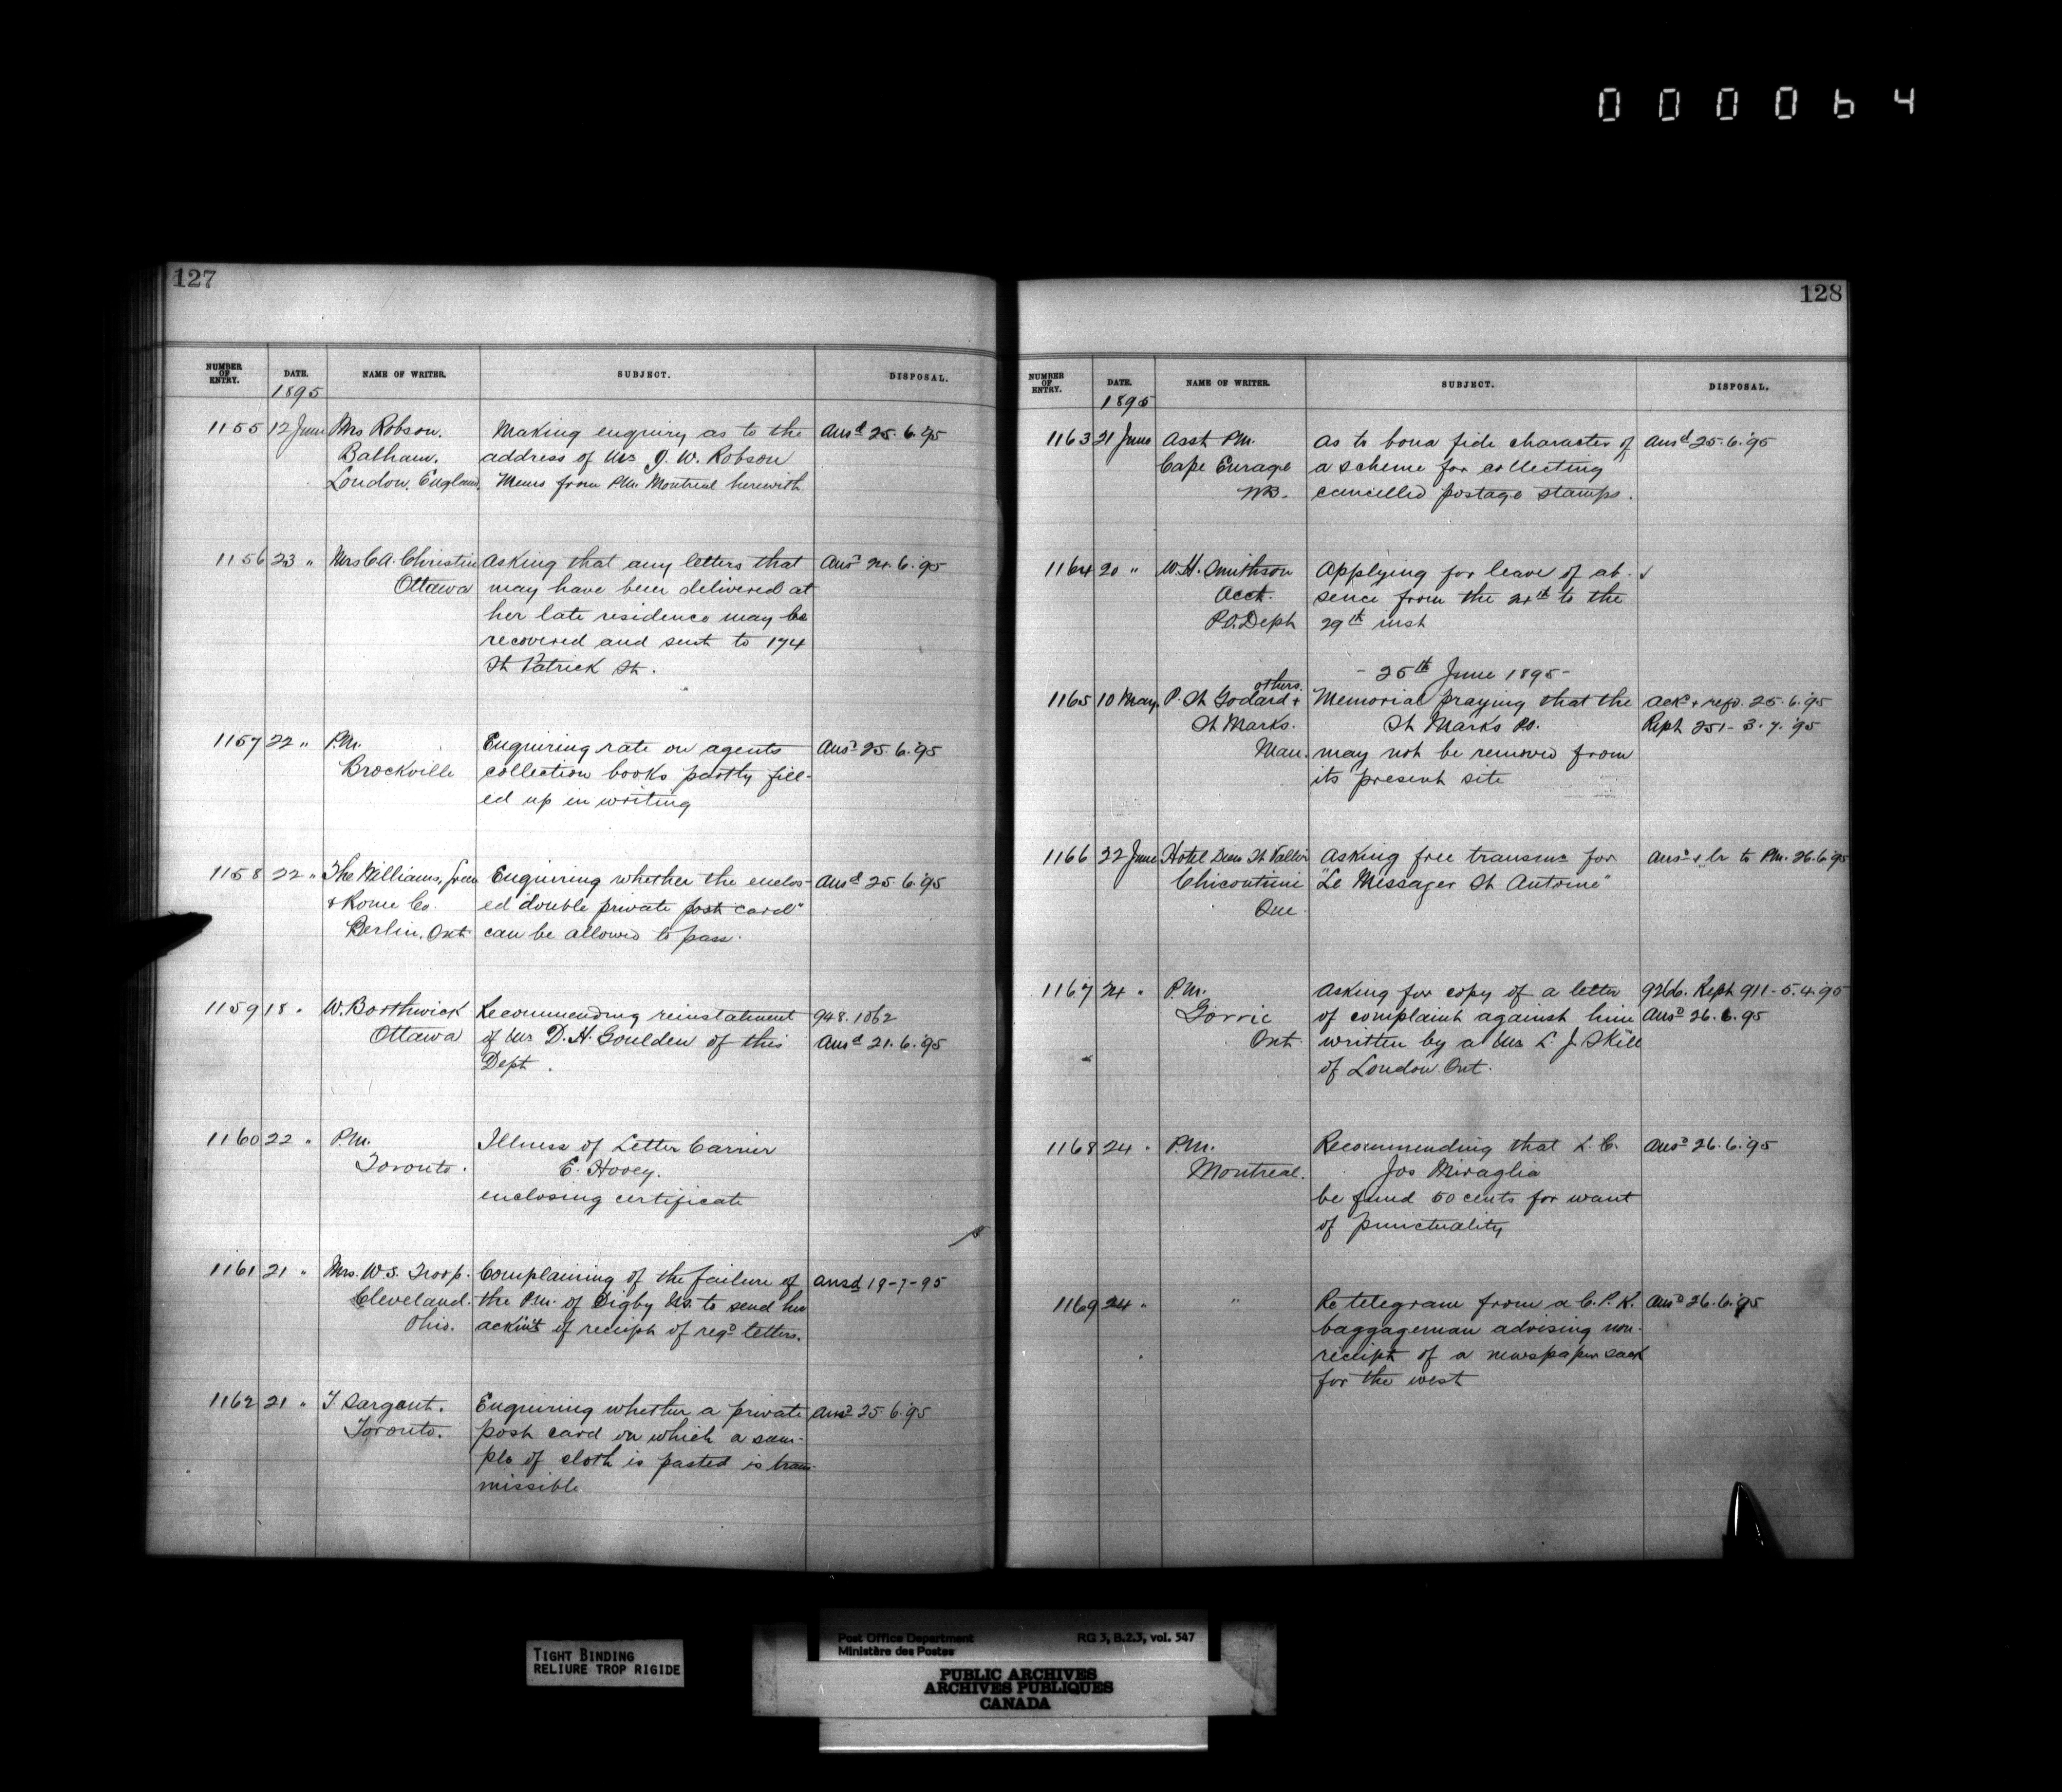 000064
127
NUMBER OF ENTRY. DATE. NAME OF WRITER. SUBJECT. DISPOSAL.
1895
1155 12 June Mrs Robson. Making enquiry as to the Ansd 25.6.'95
Balham. address of Mr J. W. Robson
London, England. Memo from P.M. Montreal herewith
1156 23 " Mrs C.A. Christin Asking that any letters that Ansd 24.6.'95
Ottawa may have been delivered at
her late residence may be
recovered and sent to 174
St Patrick St.
1157 22 " P.M. Enquiring rate on agents Ansd 25.6.'95
Brockville collection books partly fill-
ed up in writing
1158 22 " The Williams, Green Enquiring whether the enclos- Ansd 25.6.'95
& Rome Co. ed "double private post card"
Berlin. Ont can be allowed to pass.
1159 18 " W. Borthwick Recommending reinstatement 948.1062
Ottawa of Mr D. H. Goulden of this Ansd 21.6.'95
Dept.
1160 22 " P.M. Illness of Letter Carrier
Toronto. E. Hovey.
enclosing certificate
1161 21 " Mrs. W.S. Troop. Complaining of the failure of ansd 19-7-95
Cleveland. the P.M. of Digby NS. to send her
Ohio. ackm't of receipt of regd letters.
1162 21 " T. Sargent. Enquiring whether a private ansd 25.6.'95
Toronto. post card on which a sam-
ple of cloth is pasted is trans-
missible
128
NUMBER OF ENTRY. DATE. NAME OF WRITER. SUBJECT. DISPOSAL.
1895
1163 21 June Asst P.M. As to bona fide character of Ansd 25.6.'95
Cape Enrage a scheme for collecting
NB. cancelled postage stamps.
1164 20 " W.H. Smithson Applying for leave of ab-
Acct. sence from the 24th to the
P.O. Dept 29th inst
- 25th June 1895 -
others.
1165 10 May. P. St Godard + Memorial praying that the Ackd + refd. 25.6.'95
St Marks. St Marks P.O. Rept 251-3.7.'95
Man. may not be removed from
its present site
1166 22 June Hotel Dieu St Vallier Asking free transmn for Ansd + lr to P.M. 26.6.'95
Chicoutimi "Le Messager St Antoine"
Que.
1167 24 " P.M. Asking for copy of a letter 9266. Rept 911-5.4.95
Gorrie of complaint against him Ansd 26.6.95
Ont. written by a Mr L. J. Skill
of London. Ont.
1168 24 " P.M. Recommending that L.C. Ansd 26.6.'95
Montreal. Jos Miraglia
be fined 50 cents for want
of punctuality
1169 24 " " Re telegram from a C.P.R. Ansd 26.6.'95
baggageman advising non-
receipt of a newspaper sack
for the west
TIGHT BINDING
RELIURE TROP RIGIDE
Post Office Department RG 3, B.2.3, vol. 547
Ministère des Postes
PUBLIC ARCHIVES
ARCHIVES PUBLIQUES
CANADA